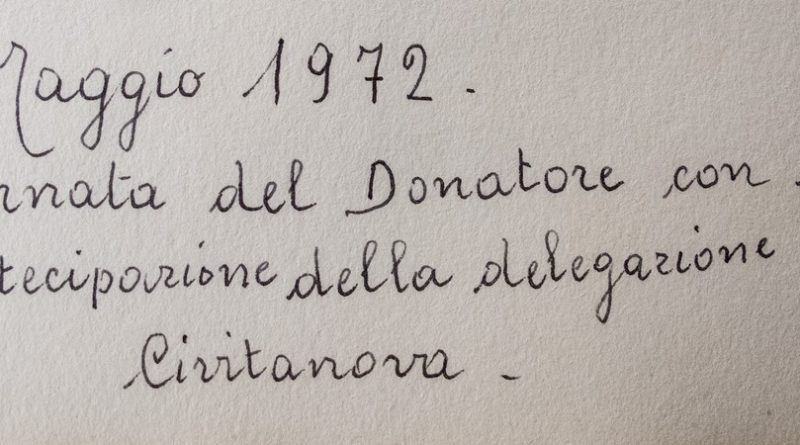 Maggio 1972.
rnata del Donatore con
tecipazione della delegazione
Civitanova -